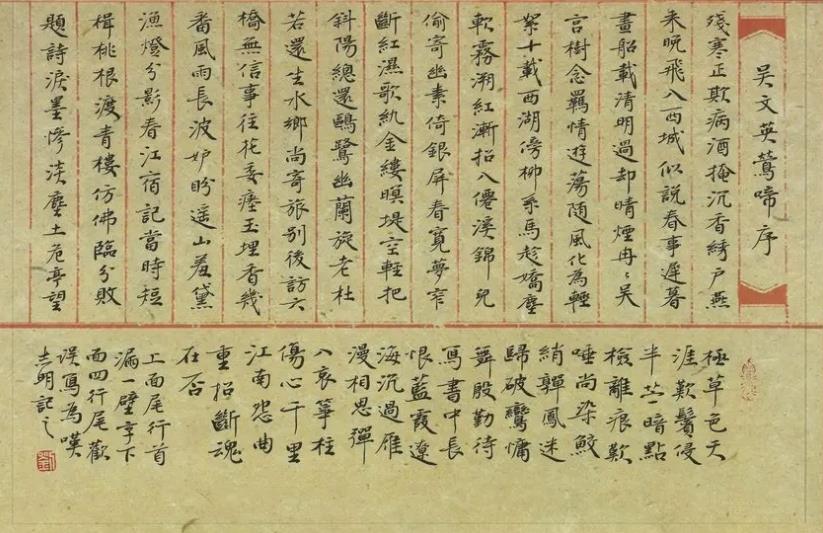 吴文英鶯啼序
殘寒正欺病酒掩沉香綉户燕
来晚飛入西城似説春事遲暮
畫船載清明過却晴煙冉〻吴
宫樹念羈情遊蕩随風化為輕
絮十載西湖傍柳系馬趁嬌塵
軟霧溯紅漸招入僊溪錦兒
偷寄幽素倚銀屏春寬夢窄
斷紅濕歌紈金縷暝堤空輕把
斜陽總還鷗鷺幽蘭旋老杜
若還生水鄉尚寄旅別後訪六
橋無信事往花委瘞玉埋香幾
番風雨長波妒盼遥山羞黛
漁燈分影春江宿記當時短
楫桃根渡青樓仿佛臨分敗
題詩淚墨慘淡塵土危亭望
極草色天
涯歎鬢侵
半苎暗點
檢離痕歎
唾尚染鮫
綃嚲鳳迷
歸破鸞慵
舞殷勤待
寫書中長
恨藍霞遼
海沉過雁
漫相思彈
入哀箏柱
傷心千里
江南怨曲
重招斷魂
在否
上面尾行首
漏一壁字下
面四行尾歡
误寫為嘆
志明記之